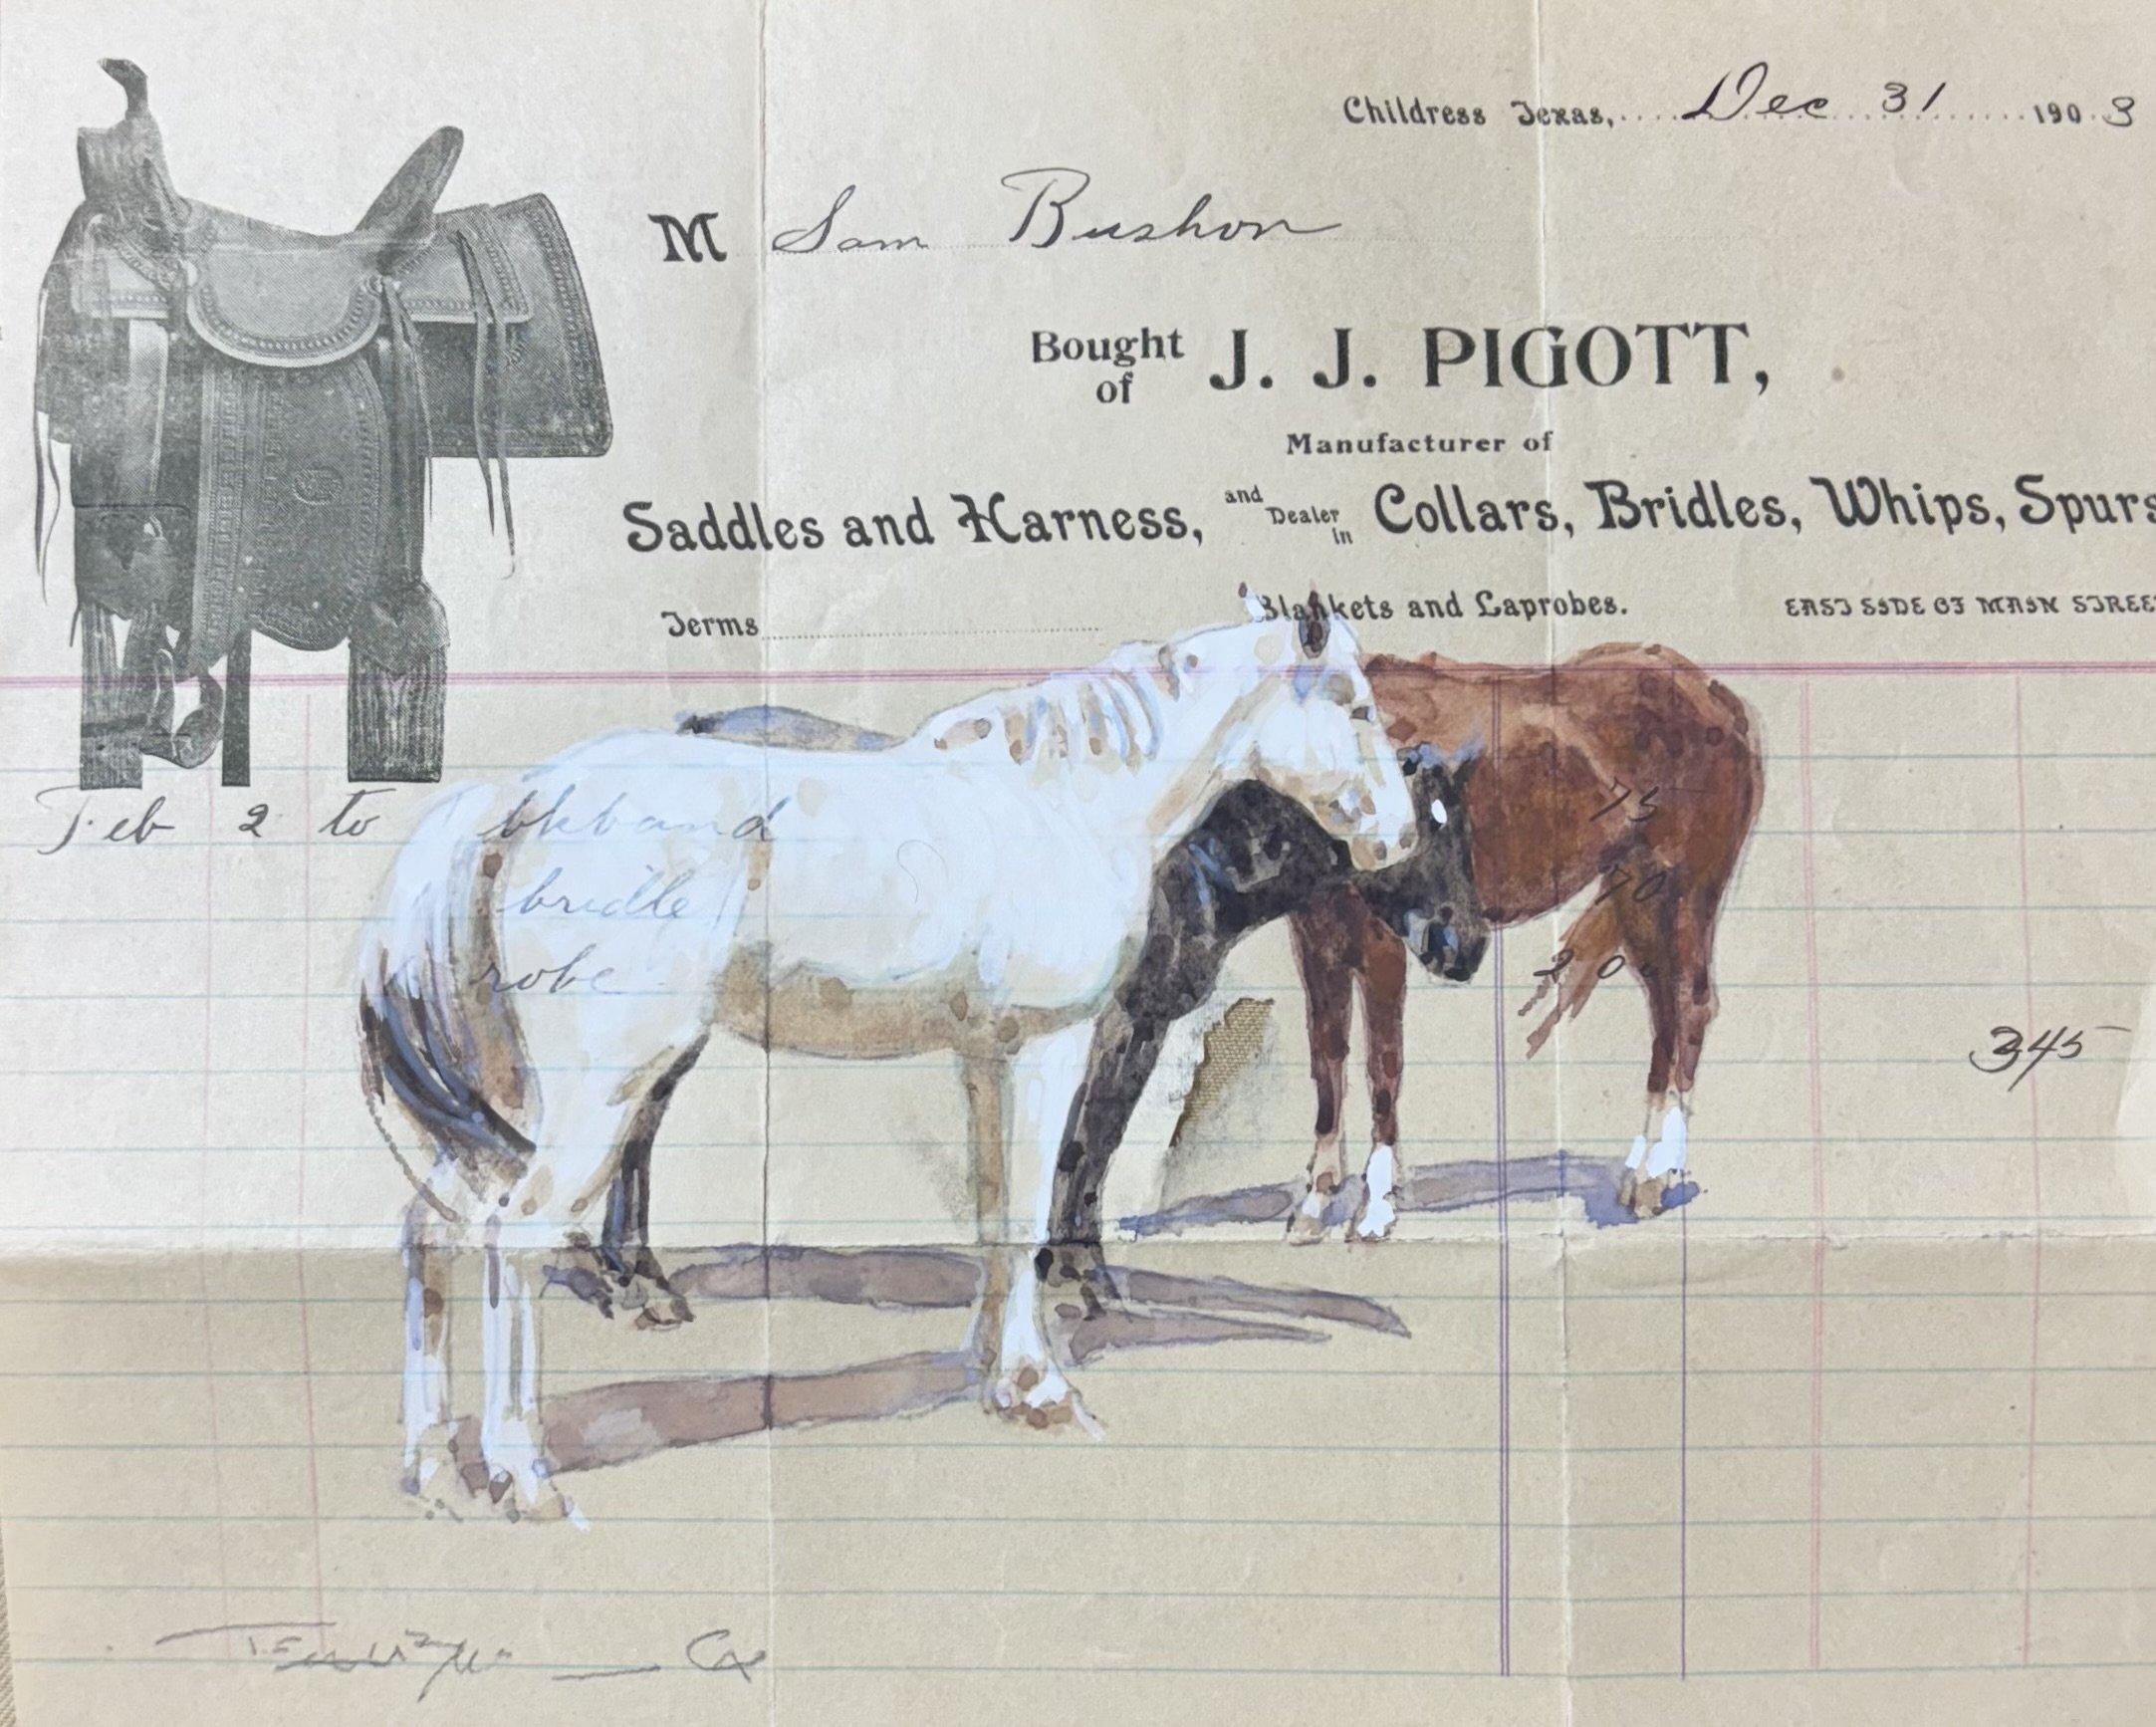 Childress Texas, Dec 31 1903
M Sam Bushon
Bought of J. J. PIGOTT,
Manufacturer of
Saddles and Harness, and Dealer in Collars, Bridles, Whips, Spurs
Terms Blankets and Laprobes. EAST SIDE OF MAIN STREE
Feb 2 to bkband 75
bridle 70
robe 2 00
345